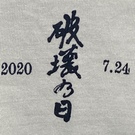 破壊の日
2020
7.24